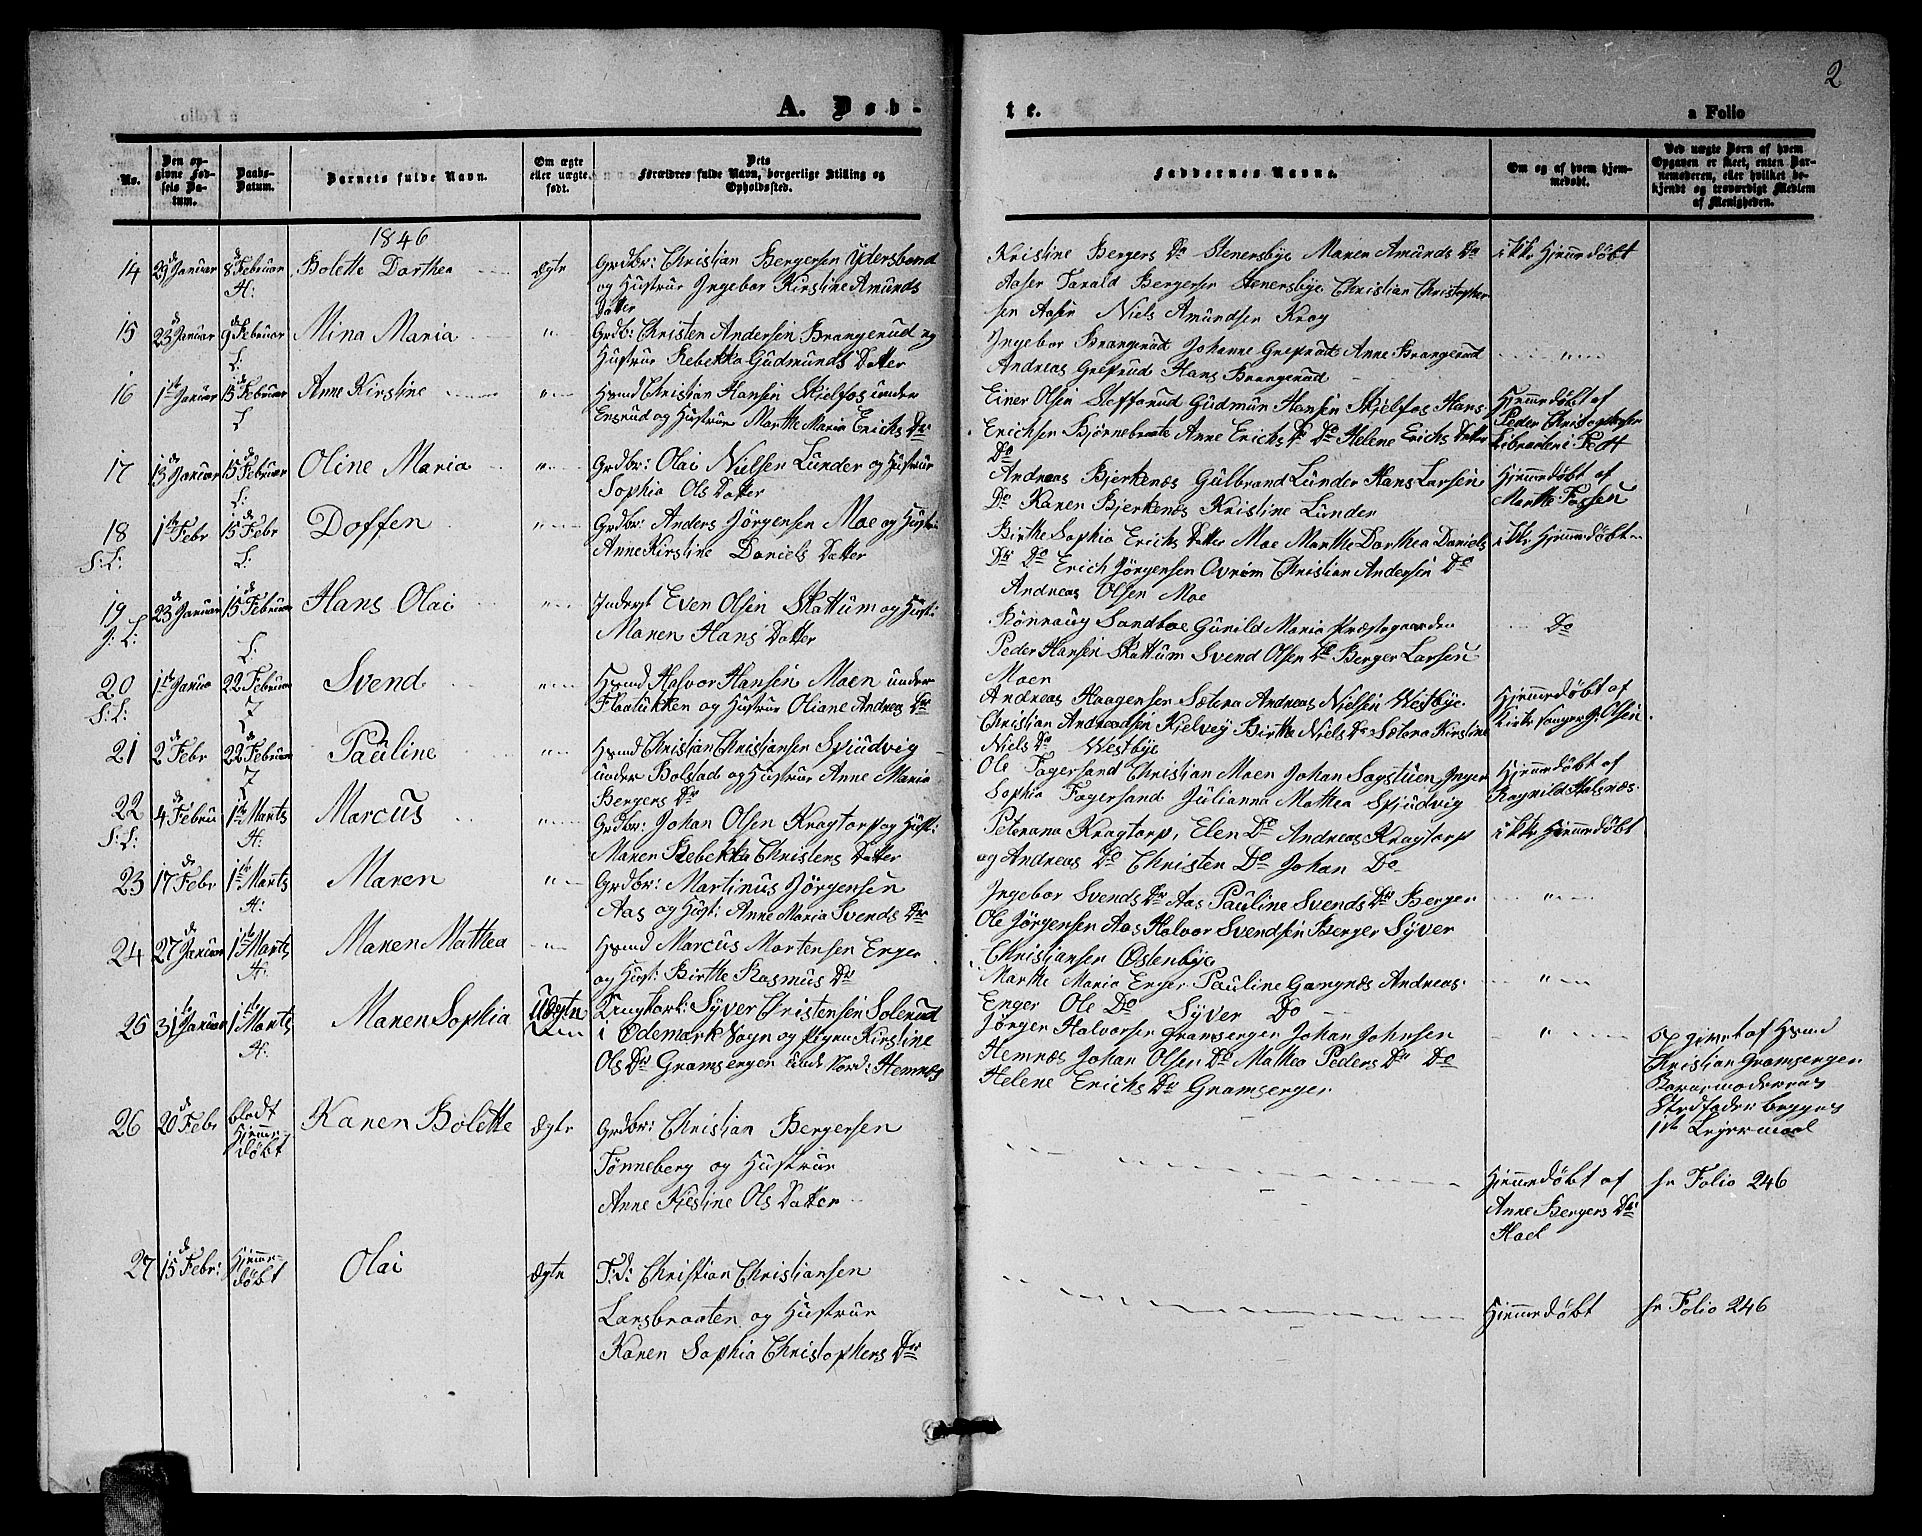 2
A. Døb-
te.
a Folio
No.
Den op-
givne Fød-
sels Da-
tum.
Daabs-
Datum.
Barnets fulde Navn.
Om ægte
eller uægte
født.
Dets
Forældres fulde Navn, borgerlige Stilling og
Opholdssted.
Faddernes Navne.
Om og af hvem hjem-
medøbt.
Ved uægte Børn af hvem
Opgaven er skeet, enten Bar-
nemoderen, eller hvilket be-
kjendt og troværdigt Medlem
af Menigheden.
1846
14 29 Januar 8 Februar H: Bolette Dorthea ægte Grdbr: Christian Bergersen Ydersbond
og Hustrue Ingebor Kirstine Amunds
Datter
Kristine Bergers Do Stenersbye Maren Amunds Do
Aaser Tarald Bergersen Stenersbye Christian Christopher
sen Aasen Niels Amundsen Krog
ikke Hjemmedøbt
15 23 Januar 9 Februar L: Mina Maria " Grdb: Christen Andersen Brangerud og
Hustrue Rebekka Gudmunds Datter
Ingebor Brangerud Johanne Grefsrud Anne Brangerud
Andreas Grefsrud Hans Brangerud
"
16 1ste Januar 15 Februar L Anne Kirstine " Hsmd Christian Hansen Skjelfos under
Ensrud og Hustrue Marthe Maria Erichs Dr
Einer Olsen Stofferud Gudmun Hansen Skjelfos Hans
Erichsen Bjørnebraate Anne Erichs Dr Do Helene Erichs Datter
Do
Hjemmedøbt af
Peder Christophersen
Librauteri Fedt
17 13 Januar 15 Februar L: Oline Maria " Grdbr: Olai Nielsen Lunder og Hustrue
Sophia Ols Datter
Andreas Bjerkenæs Gulbrand Lunder Hans Larsen
Do Karen Bjerkenæs Kristine Lunder
Hjemmedøbt af
Marthe Fossen
18 S: L: 1ste Febr 15 Febr L: Doffen " Grdbr: Anders Jörgensen Moe og Hust:
Anne Kirstine Daniels Datter
Birthe Sophia Erichs Datter Moe Marthe Dorthea Daniels
Dr Do Erich Jörgensen Ovrøm Christian Andersen Do
Andreas Olsen Moe
ikke Hjemmedøbt
19 J: L: 23 Januar 15 Februar L: Hans Olai " Inderst Even Olsen Skattum og Hust:
Maren Hans Datter
Rønnaug Sandboe Gunild Maria Præstegaarden
Peder Hansen Skattum Svend Olsen Do Berger Larsen
Moen
Do
20 S: L: 1ste Janua 22 Februar Svend " Hsmd Halvor Hansen Moen under
Flaatukken og Hustrue Oliane Andreas Dr
Andreas Haagensen Sætera Andreas Nielsen Westbye
Christian Andreassen Kjelvey Birthe Niels Dr Sætera Kirstine
Niels Dr Westbye
Hjemmedøbt af
Kirkesanger G: Olsen
21 2 Febr 22 Februar Pauline " Hsmd Christian Christiansen Spiudvig
under Bolstad og Hustrue Anne Maria
Bergers Dr
Ole Fagersand Christian Moen Johan Sagstuen Inger
Sophia Fagersand Julianna Mathea Spiudvig
Hjemmedøbt af
Ragnild Halsnæs
22 S: L: 4 Februa 1ste Marts H: Marcus " Grdbr: Johan Olsen Kragtorp og Hust:
Maren Rebekka Christens Datter
Peterana Kragtorp, Elen Do Andreas Kragtorp
og Andreas Do Christen Do Johan Do
ikke Hjemmedøbt
23 17 Febr 1ste Marts H: Maren " Grdbr: Martinus Jörgensen
Aas og Hust: Anne Maria Svends Dr
Ingebor Svends Dr Aas Pauline Svends Dr Berger
Ole Jörgensen Aas Halvor Svendsen Berger Syver
Christiansen Østenbye
"
24 27 Januar 1ste Marts H: Maren Mathea " Hsmd Marcus Mortensen Enger
og Hust: Birthe Rasmus Dr
Marthe Maria Enger Pauline Gangnæs Andreas
Enger Ole Do Syver Do
"
25 31te Januar 1ste Marts H: Maren Sophia Uægte Ungkarl: Syver Christensen Solerud
i Ødemark Sogn og Pigen Kirstine
Ols Dr Gramsergen unde Nord: Hemnæs
Jörgen Halvorsen Gramserger Johan Johnsen
Hemnæs Johan Olsen Do Mathea Peders Dr Do
Helene Erichs Dr Gramserger
"
Opgivet af Hsmd
Christian Gramsergen
Barnemoderens
Stedfader begges
1ste Leiermaal
26 20 Febr Født Hjemme-
døbt Karen Bolette ægte Grdbr: Christian Bergersen
Tønneberg og Hustrue
Anne Kirstine Ols Datter
Hjemmedøbt af
Anne Bergers Dr
Hael
se Folio 246
27 15 Febr: Hjemme-
døbt Olai ægte T:d: Christian Christiansen
Larsbraaten og Hustrue
Karen Sophia Christophers Dr
Hjemmedøbt
se Folio 246